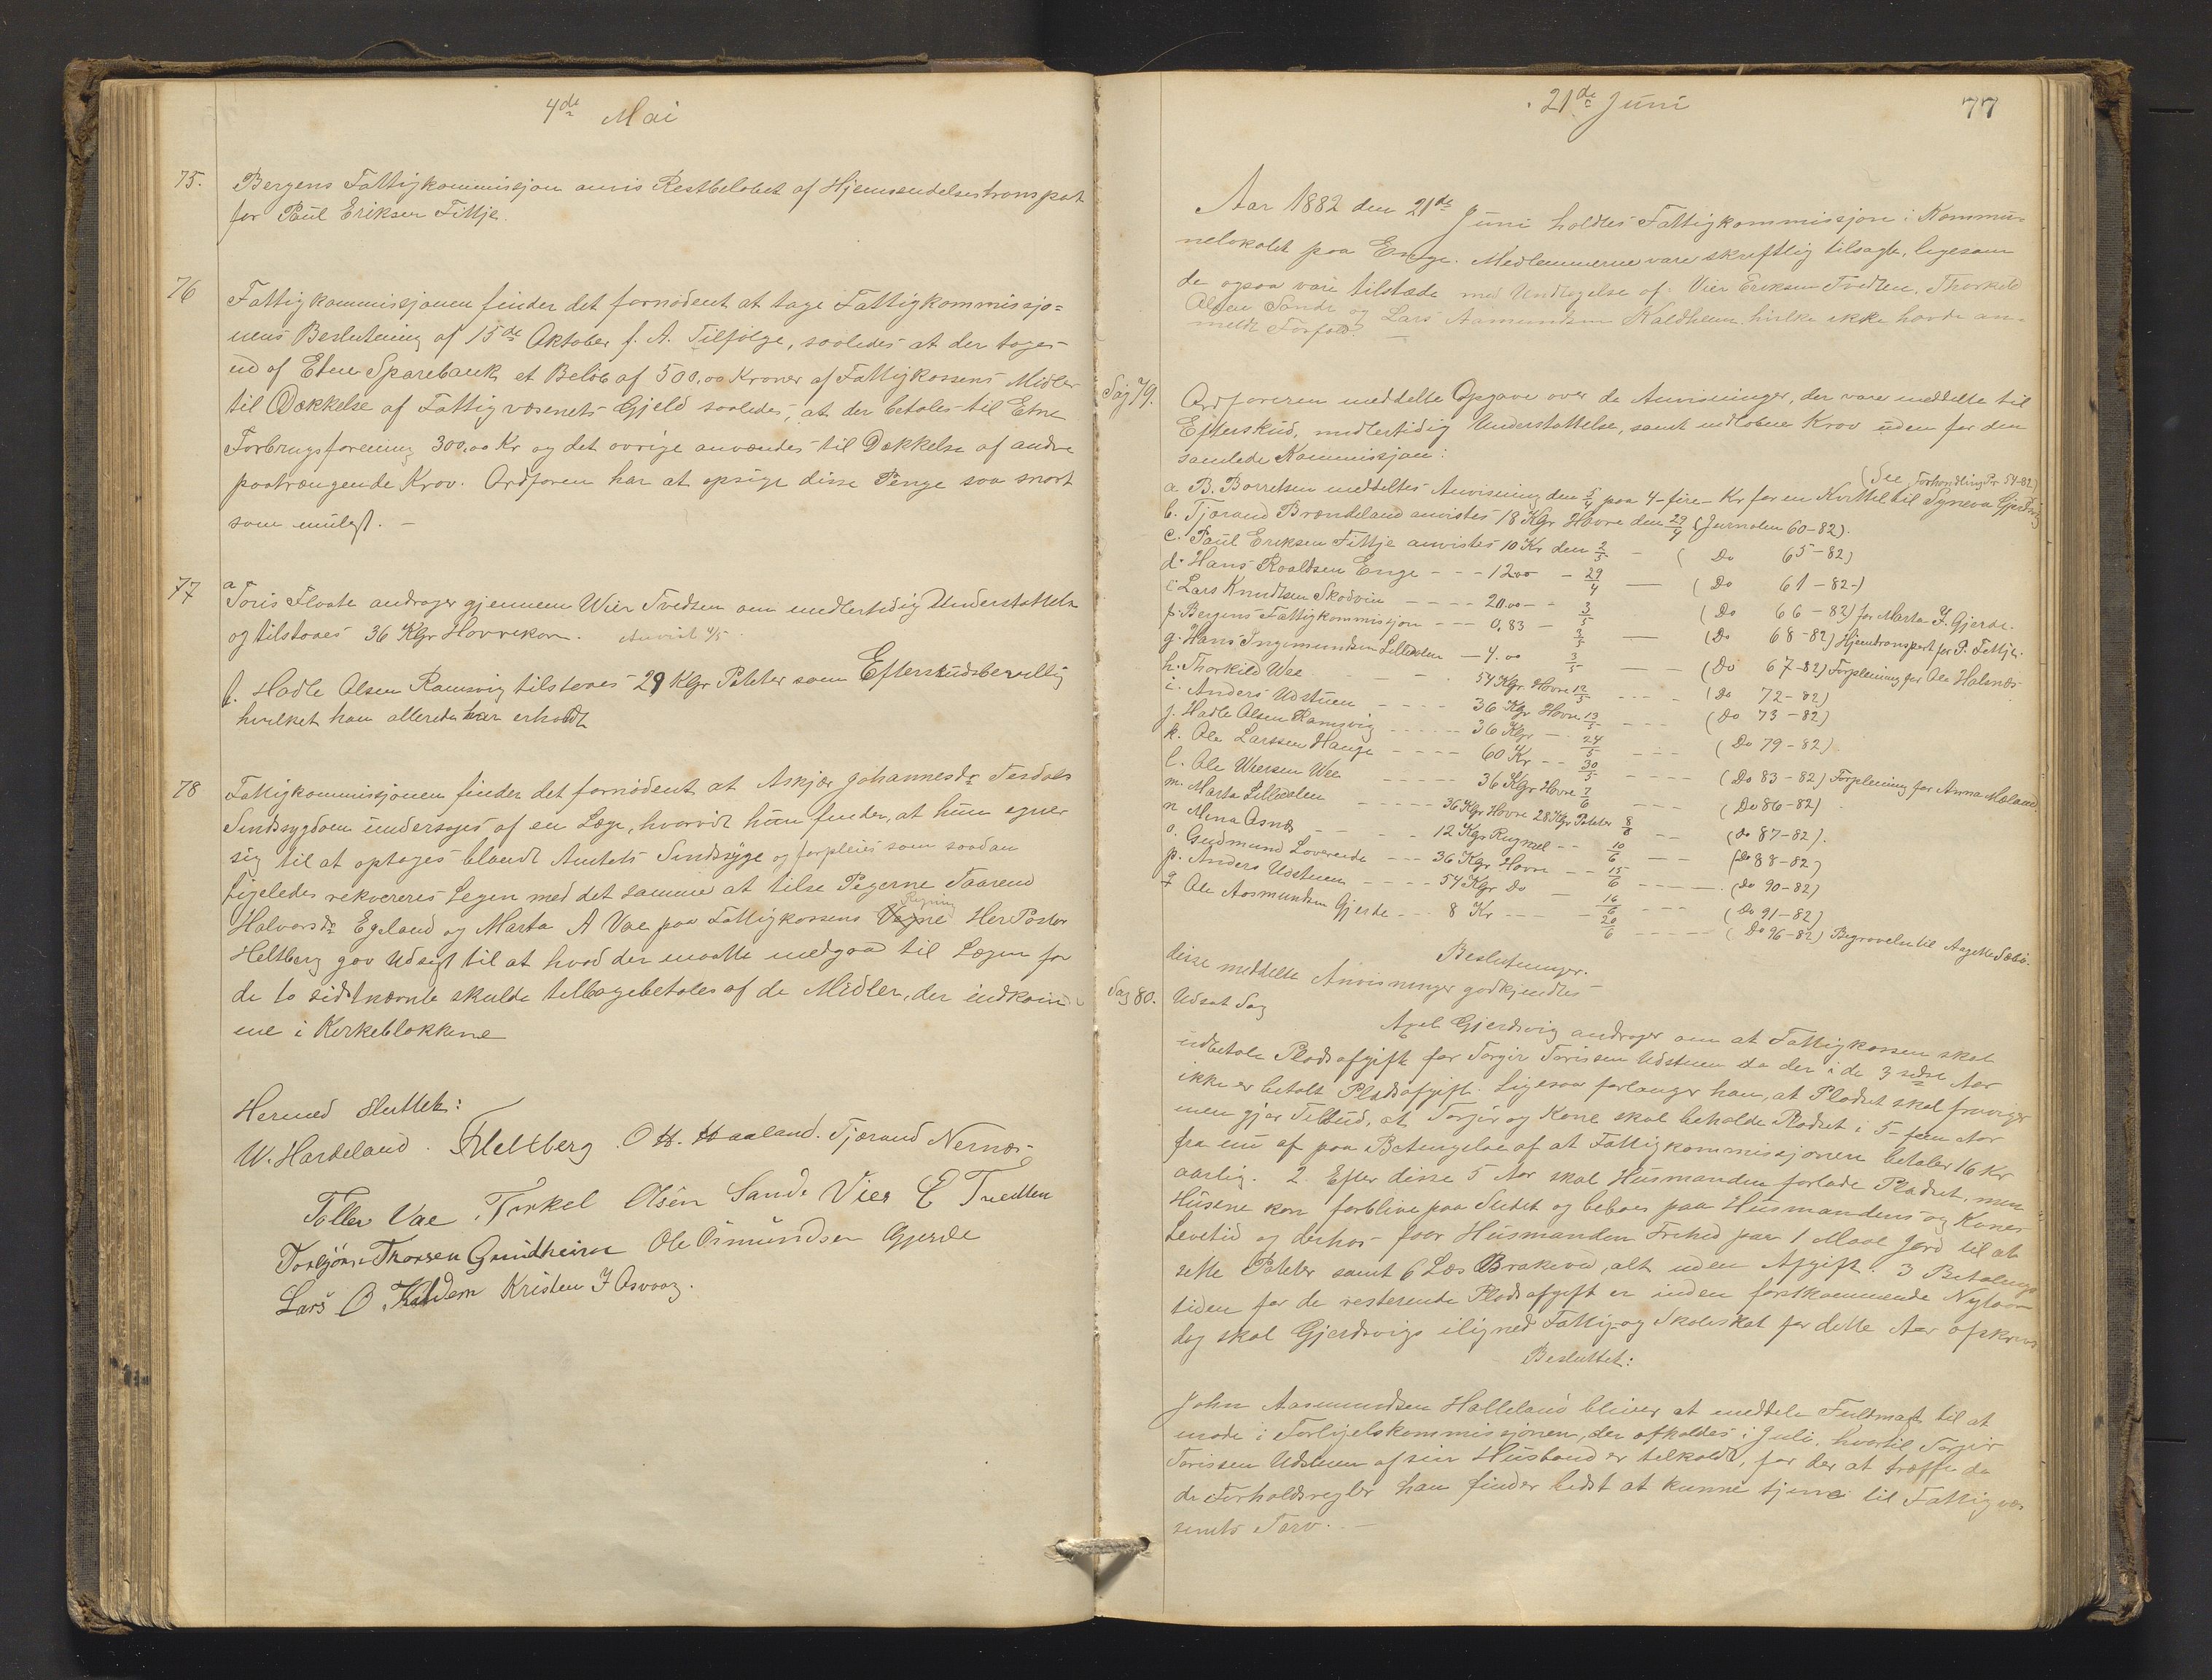 4de Mai
75. Bergens Fattigkommissjon anvis Restbeløbet af Hjemsendelsestransport
for Paul Eriksen Fittje.
76 Fattigkommissjonen finder det fornødent at tage Fattigkommissjo=
nens Beslutning af 15de Oktober f. A. Tilfølge, saaledes at der tages
ud af Etne Sparebank et Beløb af 500,00 Kroner af Fattigkassens Midler
til Dækkelse af Fattigvæsenets Gjeld saaledes, at der betales til Etne
Forbrugsforening 300,00 Kr og det øvrige anvændes til Dækkelse af andre
paatrængende Krav. Ordføren har at opsige disse Penge saa snart
som muligt. –
77 a Toris Floate andrager gjennem Wier Tvedten om midlertidig Understøttelse
og tilstaaes 36 Kgr Havrekorn. Anvist 4/5.
b. Hadle Olsen Ramsvig tilstaaes 29 Kgr Poteter som Efterskudsbevillig
hvilket han allerede har erholdt
78 Fattigkommissjonen finder det fornødent at Askjær Johannesdr Tesdals
Sindssygdom undersøges af en Læge, hvorvidt han finder, at hun egner
sig til at optages blandt Amtets Sindssyge og forpleies som saadan
ligeledes rekvereres Legen med det samme at tilse Pigerne Taarend
Regning
Halvorsdr Egeland og Marta A Vae paa Fattigkassens Vegne Her Pastor
Heltberg gav Udsigt til at hvad der maatte medgaa til Lægen for
de to sidstnævnte skulde tilbagebetales af de Midler, der indkom=
me i Kirkeblokkene
Hermed sluttet:
W. Hardeland. Heltberg. O H. Haaland. Tjærand Nernæs
Tollev Vae. Torkel Olsen Sande Vier E Tvedten
Torbjørn Thorsen Grindheim Ole Osmundsen Gjerde
Lars O Kaldem Kristen J Osvaag.
21de Juni 77
Aar 1882 den 21de Juni holdtes Fattigkommissjon i Kommu-
nelokalet paa Enge. Medlemmerne vare skriftlig tilsagte, ligesom
de ogsaa vare tilstæde med Undtagelse af: Vier Eriksen Tvedten, Thorkild
Olsen Sande og Lars Aamundsen Kaldheim, hvilke ikke havde an-
meldt Forfald. –
Sag 79. Ordføreren meddelte Opgave over de Anvisninger, der vare meddelte til
Efterskud, midlertidig Understøttelse, samt indløbne Krav uden for den
samlede Kommissjon:
(See Forhandling Nr 54-82)
a B. Børretsen meddeltes Anvisning den 5/4 paa 4-fire- Kr for en Kvittel til Syneva Gjerdsvig
b. Tjærand Brændeland anvistes 18 Kgr Havre den 29/4 (Jurnalen 60-82).
c. Paul Eriksen Fittje anvistes 10 Kr den 2/5 – (Do 65-82)
d. Hans Roaldsen Enge --- 12 00 – 29/4 — (Do 61-82-)
e Lars Knudtsen Skodvin ---- 20.00 -- 3/5 (Do 66-82) for Marta J. Gjerde.
f. Bergens Fattigkommissjon --- 0,83 – 3/5 — (Do 68-82) Hjemtransport for P. Fittje.
g. Hans Ingemundsen Lilledalen — 4.00 3/5 — — (Do 67-82) Forpleining for Ole Halsnæs
h. Thorkild Wee — — . 54 Kgr Havre 12/5 --- (Do 72-82)
i. Anders Udstuen ---- 36 Kgr Havre 13/5 --- (Do 73-82)
j. Hadle Olsen Ramsvig ----- 36 Kgr – 24/5 --- (Do 79-82)
k. Ole Larssen Hauge ---- 60 Kr -- 30/5 ---- (Do 83-82) Forpleining for Anna Mæland
l. Ole Weersen Wee ----- 36 Kgr Havre 7/6 --- (Do 86-82)
m. Marta Lilledalen ----- 36 Kgr Havre 28 Kgr Poteter 8/6 -- (Do 87-82).
n Mina Osnæs ---- 12 Kgr Rugmel -- 10/6 -- (Do 88-82)
o. Gudmund Løverende --- 36 Kgr Havre -- 15/6 ---- (Do 90-82)
p. Anders Udstuen ---- 54 Kgr Do – 16/6 --- (Do 91-82)
q Ole Aasmundsen Gjerde --- 8 Kr ---- 20/6 ----- (Do 96-82) Begravelse til Aagatte Sæbø.
Beslutninger.
disse meddelte Anvisninger godkjendtes
Sag 80. Udsat Sag
Axel Gjerdsvig andrager om at Fattigkassen skal
udbetale Pladsafgift for Torgir Torissen Udstuen da der i de 3 sidste Aar
ikke er betalt Pladsafgift. Ligesaa forlanger han, at Pladset skal fraviges
men gjør Tilbud, at Torgir og Kone skal beholde Pladset i 5-fem Aar
fra nu af paa Betingelse af at Fattigkommissjonen betaler 16 Kr
aarlig. 2. Efter disse 5 Aar skal Husmanden forlade Pladset, men
Husene kan forblive paa Stedet og beboes paa Husmandens og Kones
Levetid og derhos faar Husmanden Frihed paa 1 Maal Jord til at
sette Poteter samt 6 Læs Brakeved, alt uden Afgift. 3 Betalings
tiden for de resterende Pladsafgift er inden førstkommende Nytaars
dag skal Gjerdsvigs ilignet Fattig- og Skoleskat for dette Aar afskrives
Besluttet:
John Aasmundsen Halleland bliver at meddele Fuldmagt til at
møde i Forligelskommissjonen, der afholdes i Juli, hvortil Torgir
Torissen Udstuen af sin Husbond er tilkaldt, for der at træffe da
de Forholdsregler han finder bedst at kunne tjene til Fattigvæ
senets Tarv. –